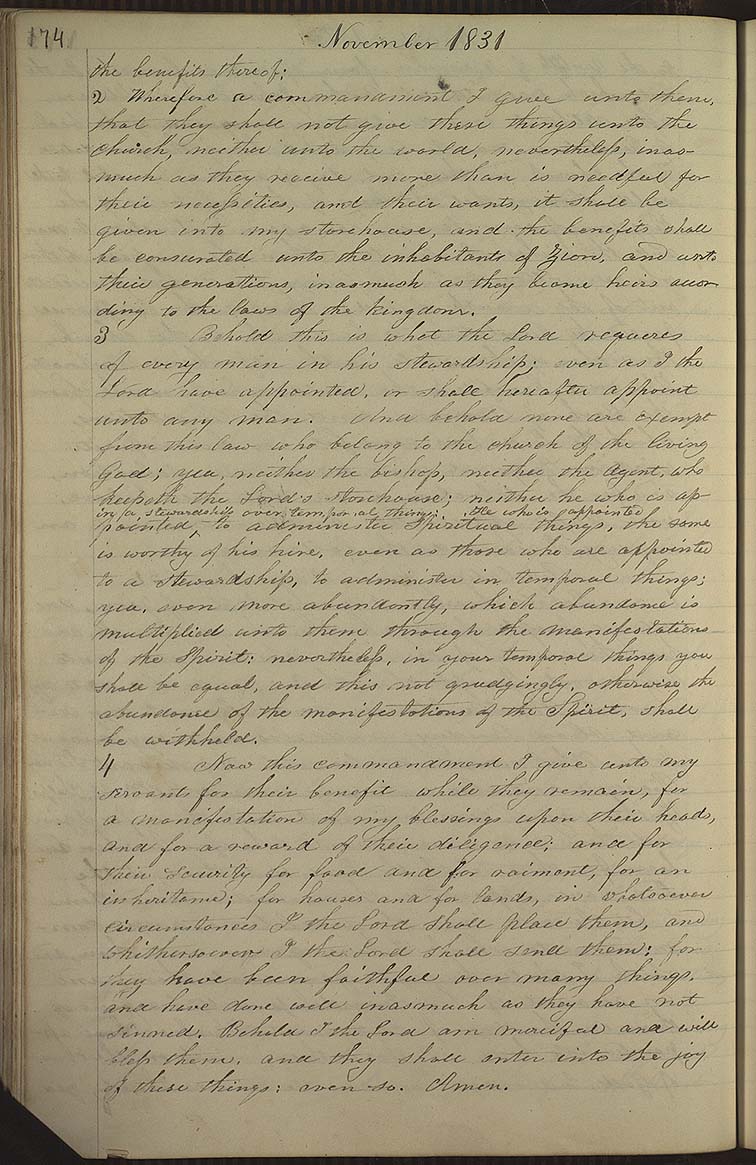 174 November 1831
the benefits thereof;
2 Wherefore a commandment I give unto them,
that they shall not give these things unto the
church, neither unto the world, nevertheless, inas-
much as they receive more than is needful for
their necessities, and their wants, it shall be
given into my storehouse, and the benefits shall
be consecrated unto the inhabitants of Zion, and unto
their generations, inasmuch as they become heirs accor-
ding to the laws of the kingdom.
3 Behold this is what the Lord requires
of every man in his stewardship; even as I the
Lord have appointed, or shall hereafter appoint
unto any man. And behold none are exempt
from this law who belong to the church of the living
God; yea, neither the bishop, neither the Agent, who
keepeth the Lord's storehouse; neither he who is ap-
in a stewardship over temporal things; He who is appointed
pointed ^ to administer Spiritual things, the same
is worthy of his hire, even as those who are appointed
to a stewardship, to administer in temporal things;
yea, even more abundantly, which abundance is
multiplied unto them through the manifestations
of the Spirit: nevertheless, in your temporal things you
shall be equal, and this not grudgingly, otherwise the
abundance of the manifestations of the Spirit, shall
be withheld.
4 Now this commandment I give unto my
servants for their benefit while they remain, for
a manifestation of my blessings upon their heads,
and for a reward of their diligence; and for
their security for food and for raiment, for an
inheritance; for houses and for lands, in whatsoever
circumstances I the Lord shall place them, and
whithersoever I the Lord shall send them: for
they have been faithful over many things,
and have done well inasmuch as they have not
sinned. Behold I the Lord am merciful and will
bless them, and they shall enter into the joy
of these things: even so. Amen.